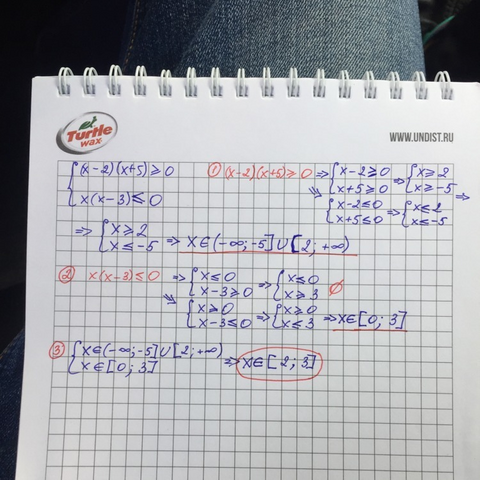 Turtle
wax
WWW.UNDIST.RU
{(x-2)(x+5)≥0
{x(x-3)≤0
① (x-2)(x+5)≥0 ⇒ {x-2≥0 ⇒ {x≥2
{x+5≥0 {x≥-5 ⇒
⇒ {x-2≤0 ⇒ {x≤2
{x+5≤0 {x≤-5
⇒ {x≥2
{x≤-5 ⇒ x∈(-∞;-5]∪[2;+∞)
② x(x-3)≤0 ⇒ {x≤0 ⇒ {x≤0
{x-3≥0 {x≥3 ∅
⇒ {x≥0 ⇒ {x≥0
{x-3≤0 {x≤3 ⇒ x∈[0;3]
③ {x∈(-∞;-5]∪[2;+∞)
{x∈[0;3] ⇒ x∈[2;3]